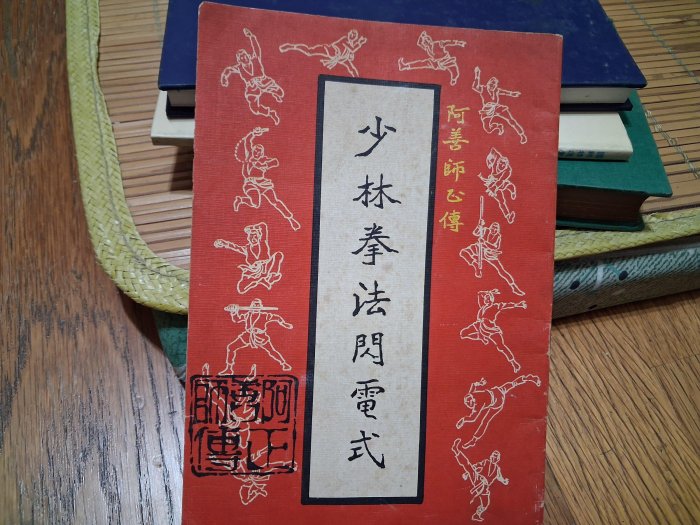 阿善師正傳
少林拳法閃電式
阿善師正傳